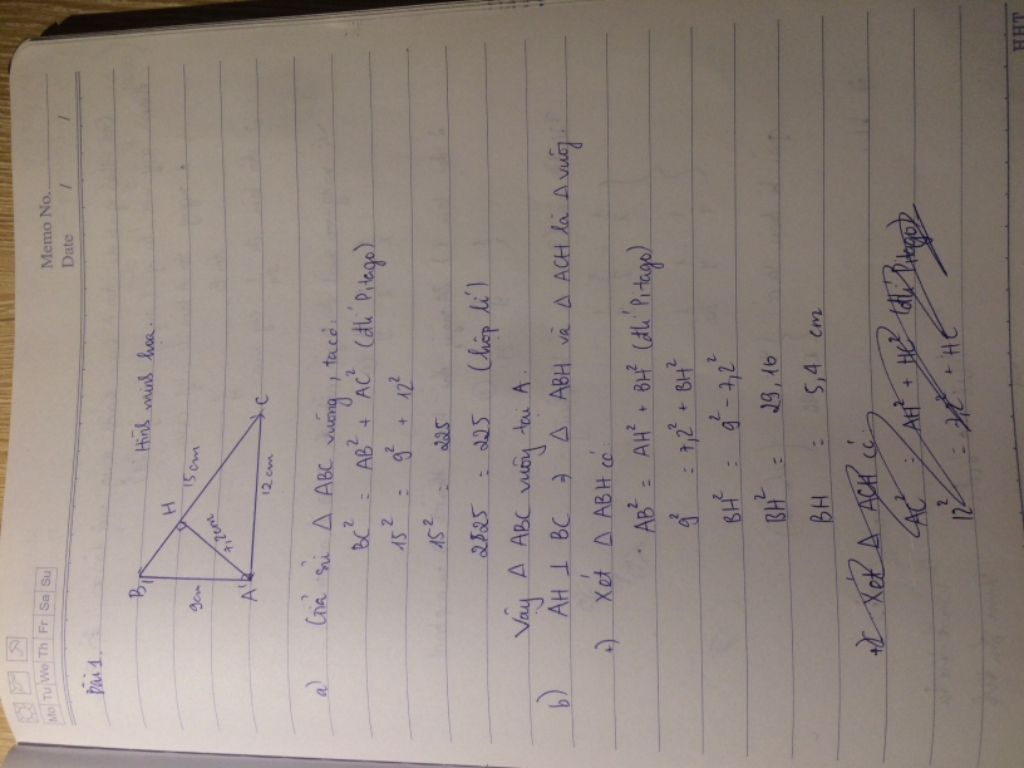 Memo No.
Date / /
Mo Tu We Th Fr Sa Su
Bài 1.
Hình minh hoạ.
B
H
15cm
9cm
7,2cm
A
12cm
C
a) Giả sử Δ ABC vuông, ta có:
BC² = AB² + AC² (đlí Pitago)
15² = 9² + 12²
15² 225
2825 = 225 (hợp lí)
Vậy Δ ABC vuông tại A.
b) AH ⊥ BC → Δ ABH và Δ ACH là Δ vuông.
+) Xét Δ ABH có:
AB² = AH² + BH² (đlí Pitago)
9² = 7,2² + BH²
BH² = 9² - 7,2²
BH² = 29,16
BH = 5,4 cm
+) Xét Δ ACH có:
AC² = AH² + HC² (đlí Pitago)
12² = + HC
HHT